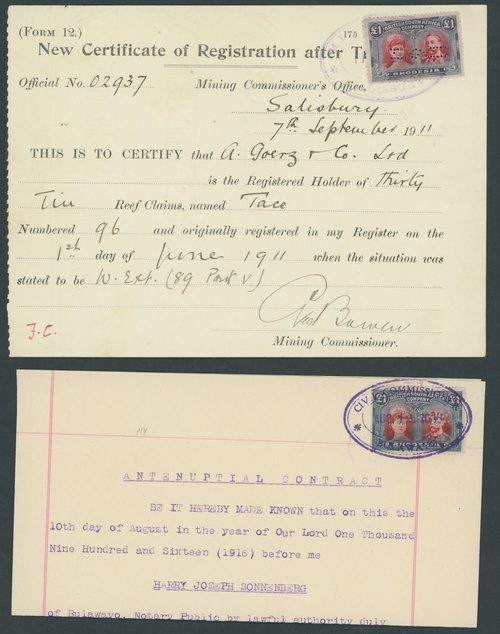 (FORM 12.)
175
New Certificate of Registration after T
£1 BRITISH SOUTH AFRICA COMPANY £1
RHODESIA
Official No. 02937 Mining Commissioner's Office,
Salisbury
7th September 1911
THIS IS TO CERTIFY that A. Goerz & Co. Ltd
is the Registered Holder of Thirty
Tin Reef Claims, named Tace
Numbered 96 and originally registered in my Register on the
1st day of June 1911 when the situation was
stated to be W. Ext. (89 Post V)
Bowen
J.C.
Mining Commissioner.
CIVIL COMMISSIONER
£1 BRITISH SOUTH AFRICA COMPANY £1
RHODESIA
ANTENUPTIAL CONTRACT
BE IT HEREBY MADE KNOWN that on this the
10th day of August in the year of Our Lord One Thousand
Nine Hundred and Sixteen (1916) before me
HARRY JOSEPH SONNENBERG
of Bulawayo, Notary Public by lawful authority duly